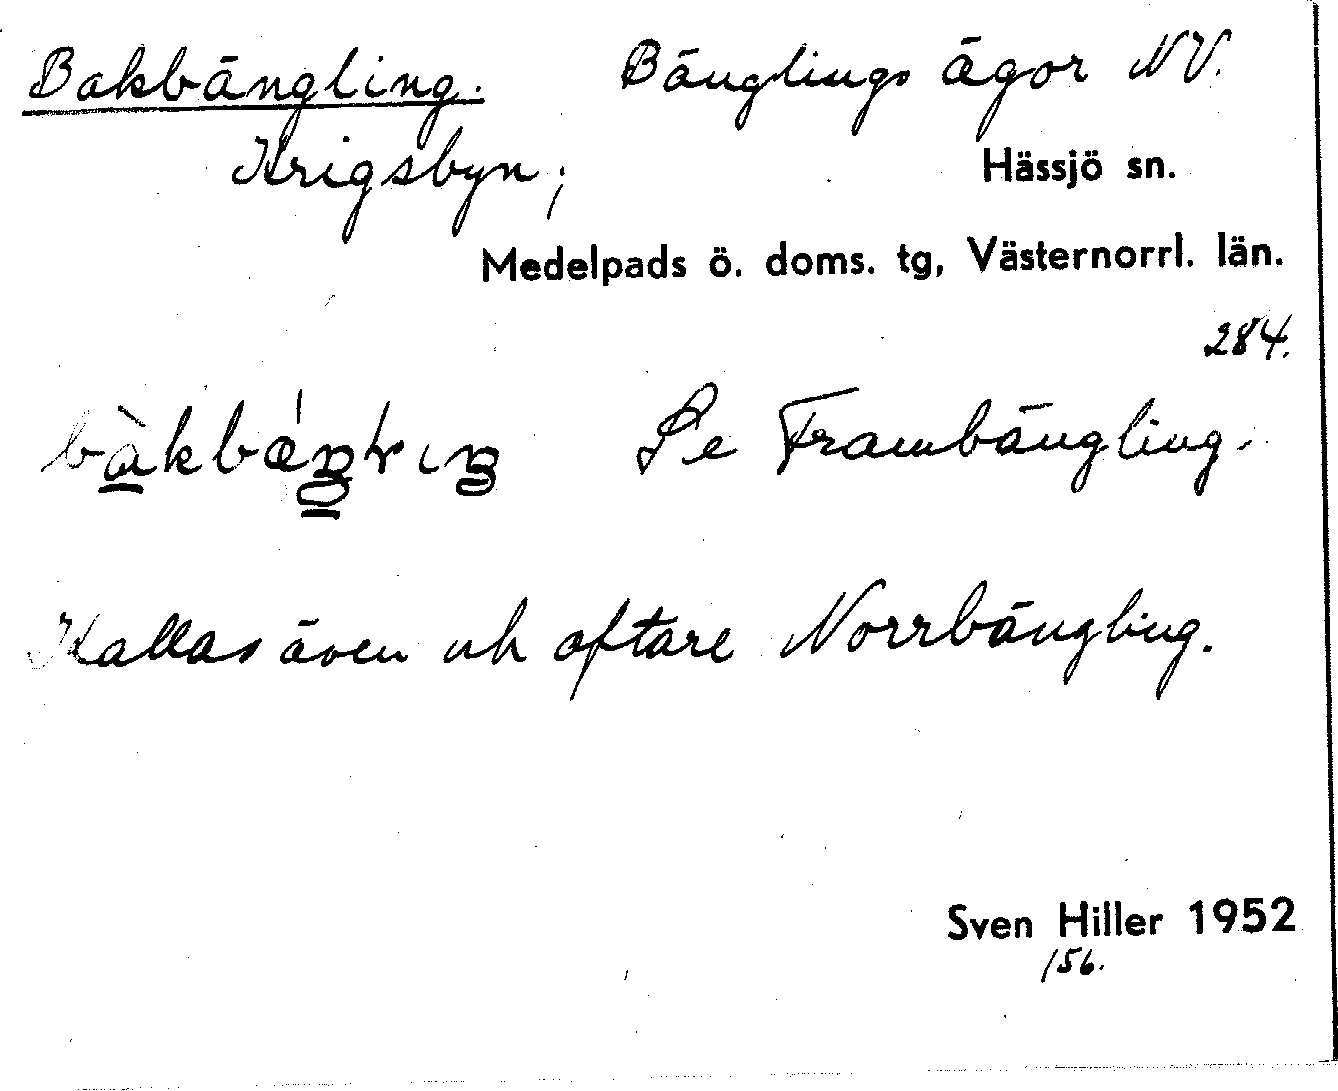 Bakbängling. Bänglings ägor NV.
Krigsbyn; Hässjö sn.
Medelpads ö. doms. tg, Västernorrl. län.
284.
Se Frambängling.
Kallas även och oftare Norrbängling.
Sven Hiller 1952
156.